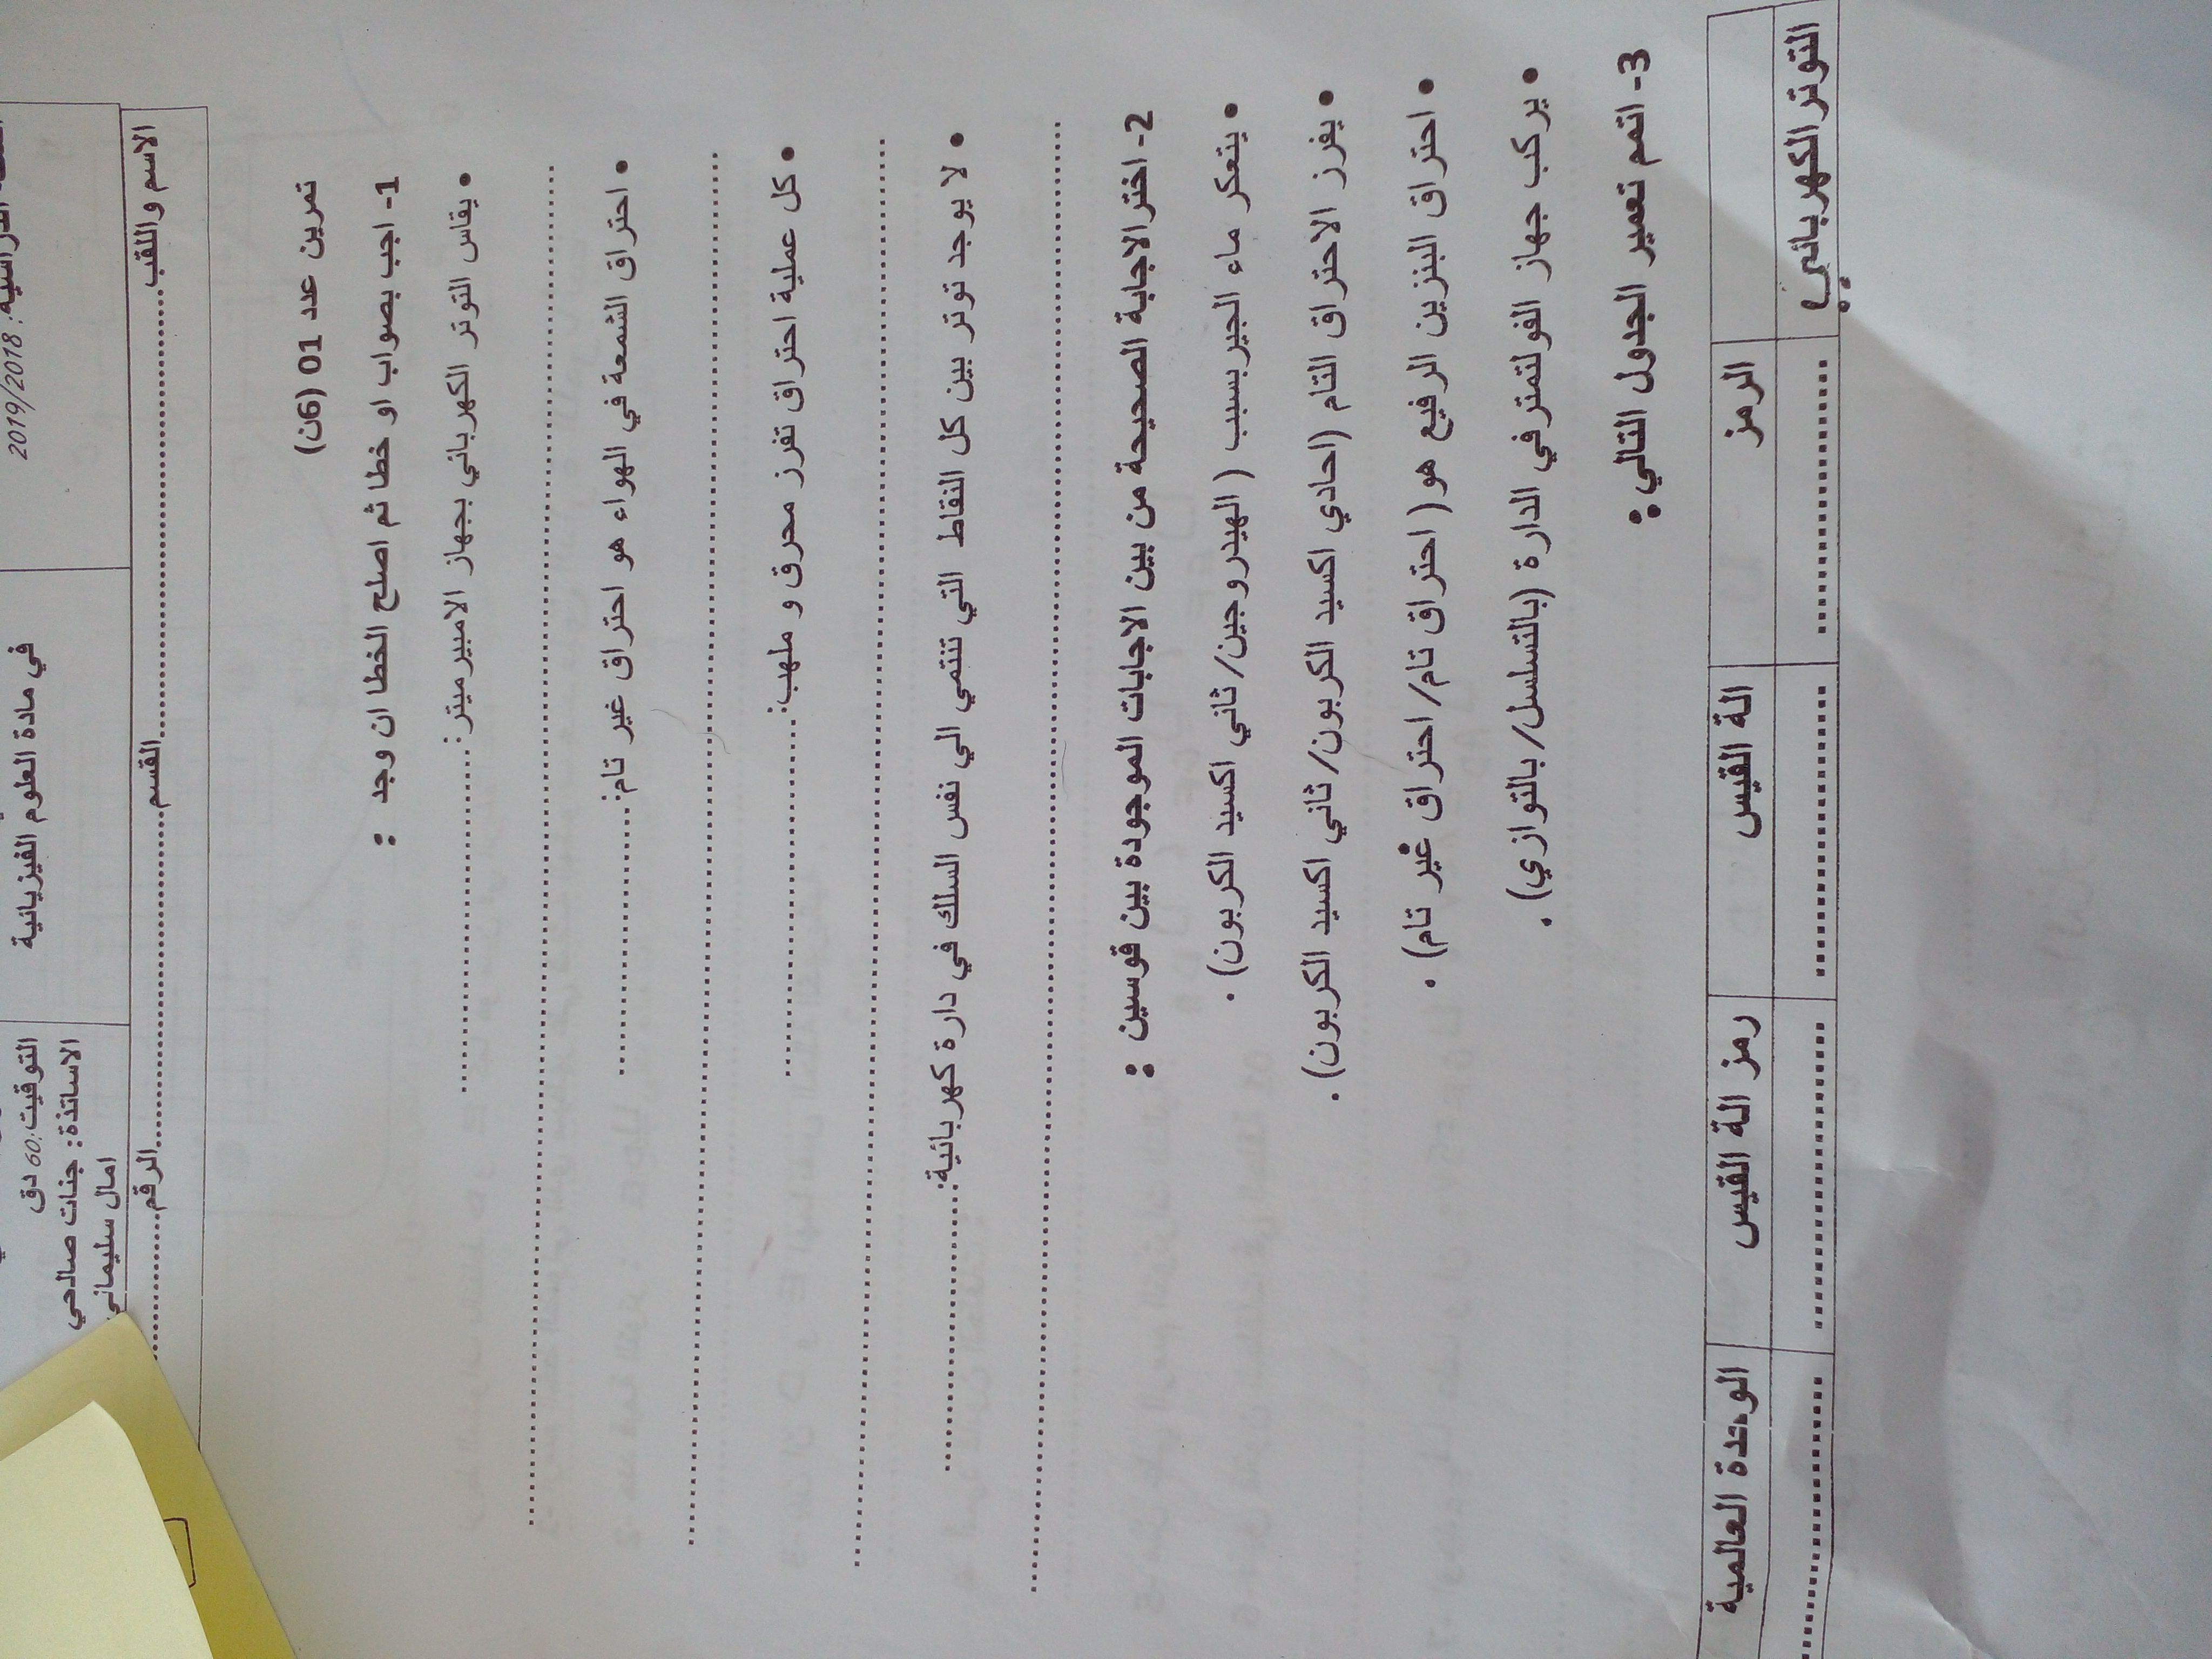 2019/2018
في مادة العلوم الفيزيائية
التوقيت: 60 دق
الاساتذة: جنات صالحي
امال سليماني
الاسم واللقب..............................القسم..............................الرقم..............
تمرين عدد 01 (6ن)
1- اجب بصواب او خطا ثم اصلح الخطا ان وجد :
• يقاس التوتر الكهربائي بجهاز الامبيرميتر:..............................
..............................
• احتراق الشمعة في الهواء هو احتراق غير تام:..............................
..............................
• كل عملية احتراق تفرز محرق و ملهب:..............................
..............................
• لا يوجد توتر بين كل النقاط التي تنتمي الي نفس السلك في دارة كهربائية:..............................
..............................
2- اختر الاجابة الصحيحة من بين الاجابات الموجودة بين قوسين :
• يتعكر ماء الجير بسبب ( الهيدروجين/ ثاني اكسيد الكربون).
• يفرز الاحتراق التام (احادي اكسيد الكربون/ ثاني اكسيد الكربون).
• احتراق البنزين الرفيع هو( احتراق تام/ احتراق غير تام) .
• يركب جهاز الفولتمتر في الدارة (بالتسلسل/ بالتوازي).
3- اتمم تعمير الجدول التالي:
الرمز الة القيس رمز الة القيس الوحدة العالمية
التوتر الكهربائي .............. .............. .............. ..............